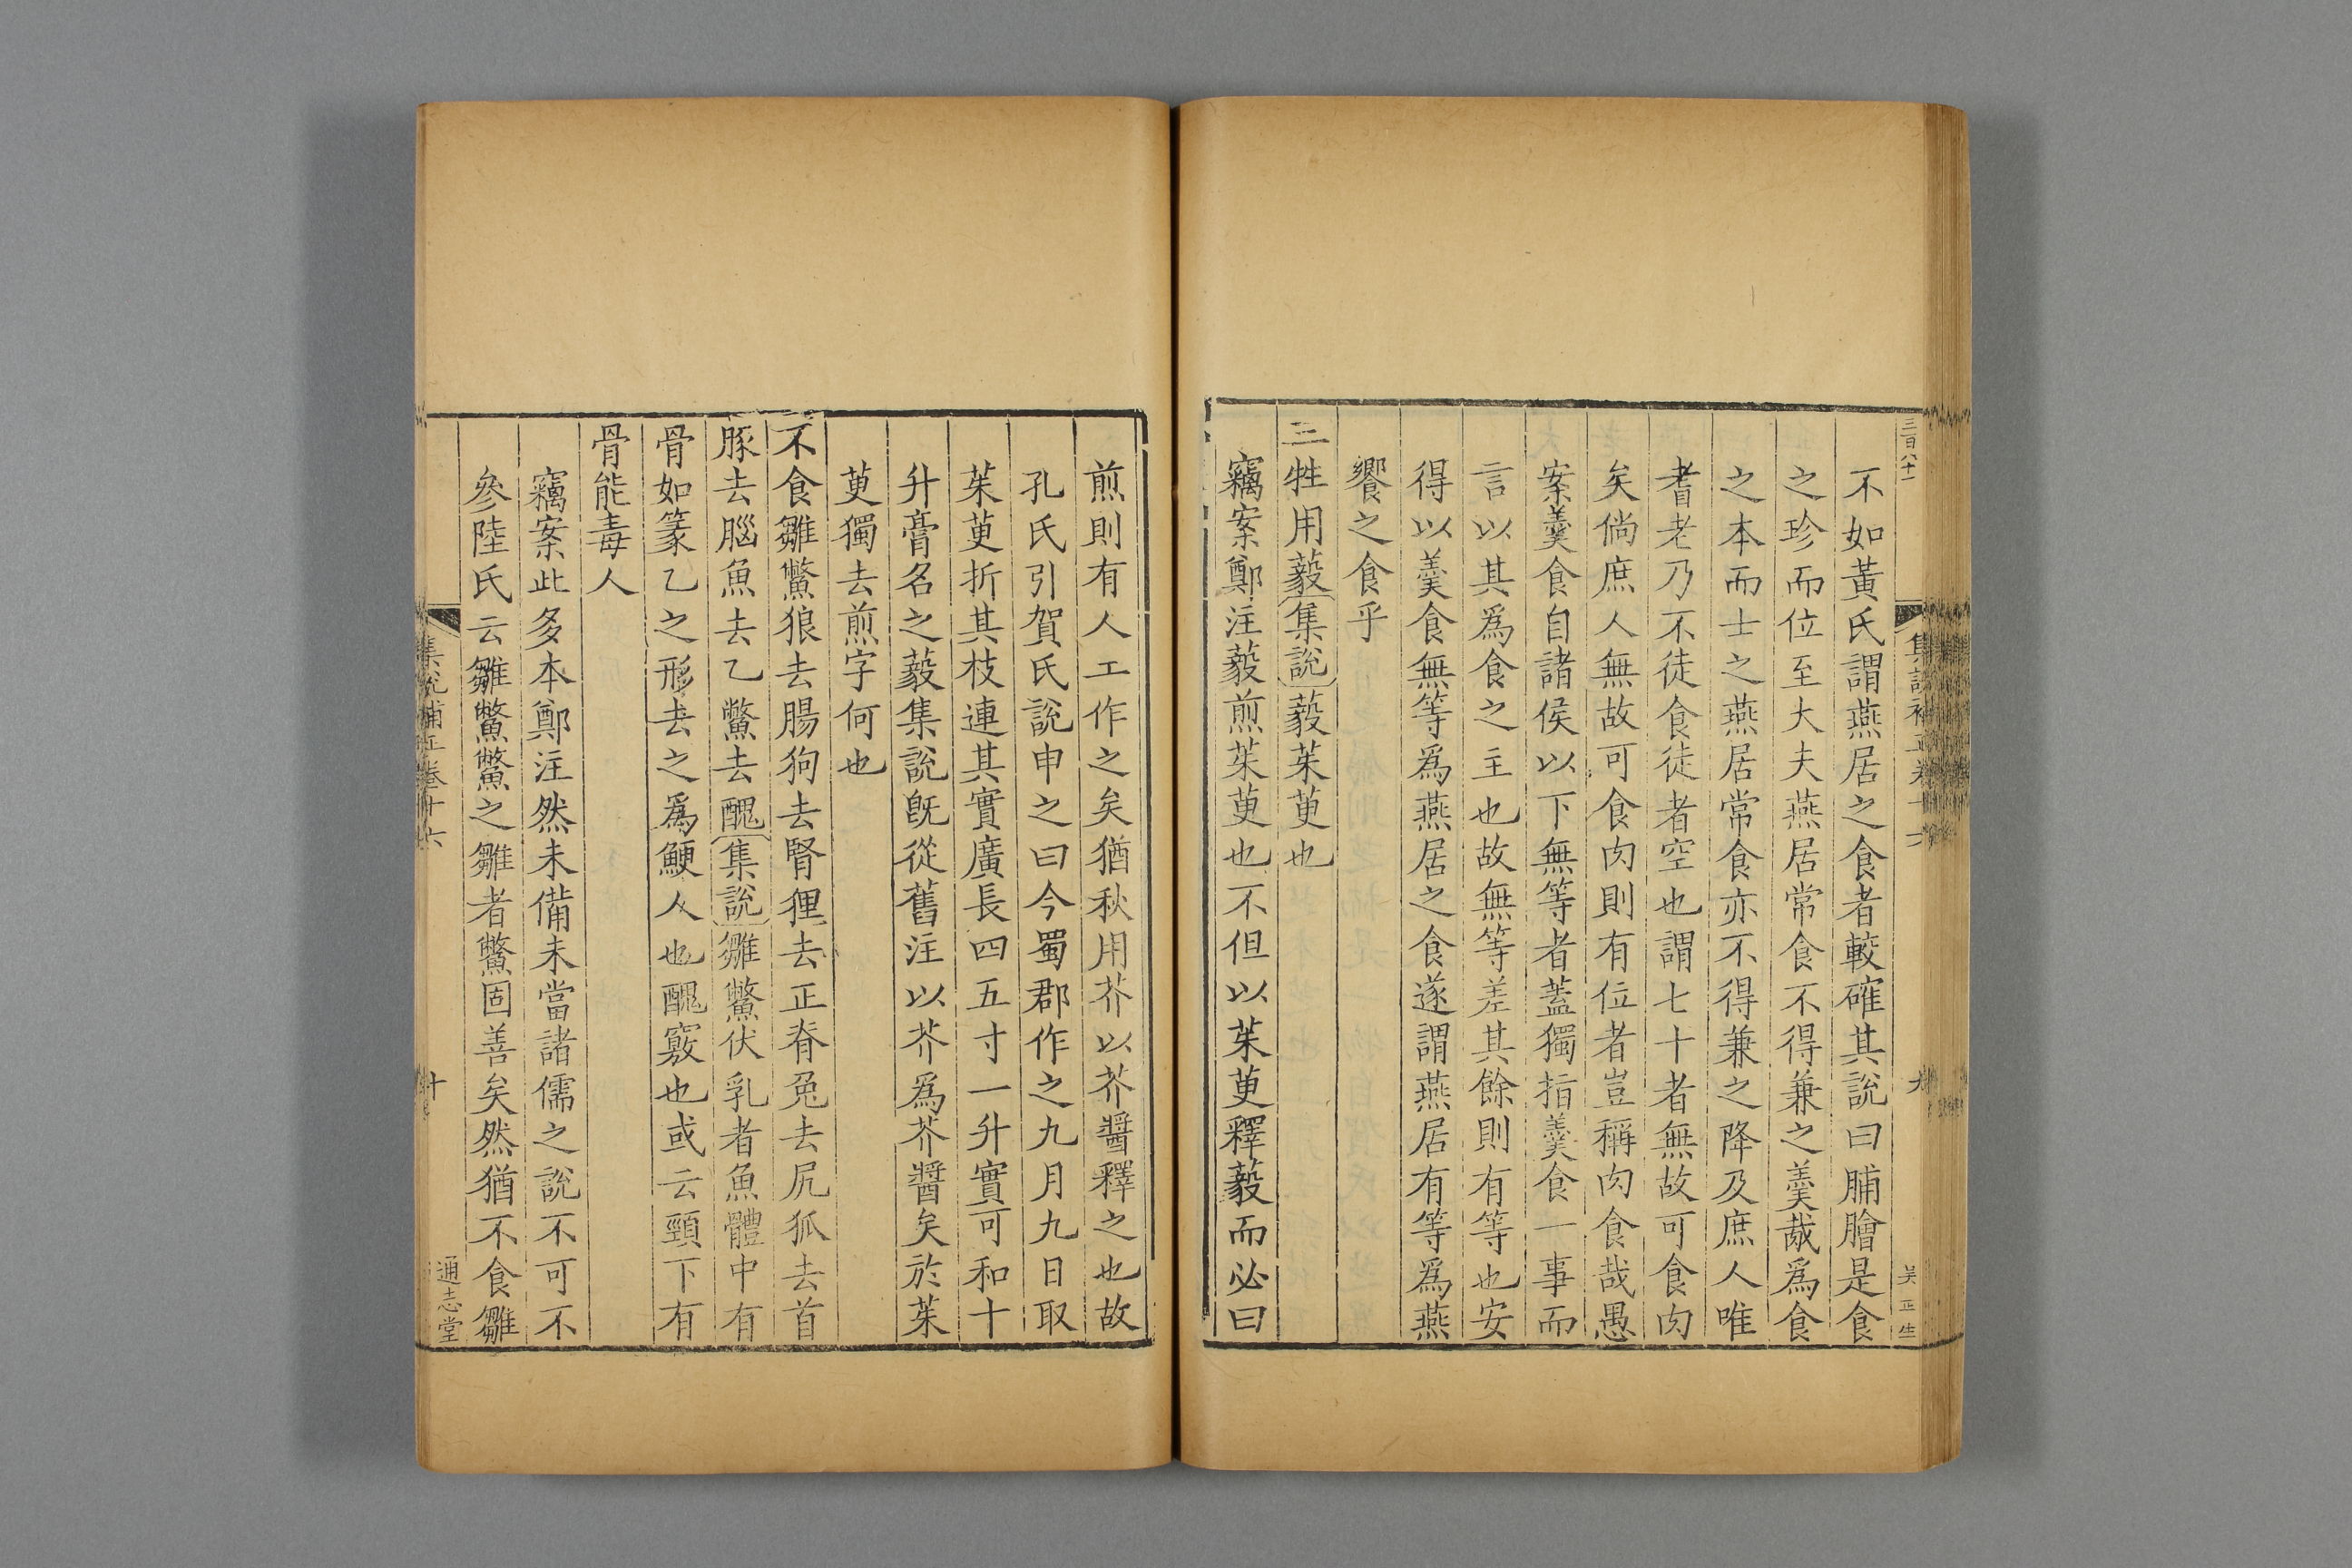 三百八十一
不如黃氏謂燕居之食者較確其說曰脯膾是食
之珍而位至大夫燕居常食不得兼之羹胾爲食
之本而士之燕居常食亦不得兼之降及庶人唯
耆老乃不徒食徒者空也謂七十者無故可食肉
矣倘庶人無故可食肉則有位者豈稱肉食哉愚
案羹食自諸侯以下無等者蓋獨指羹食一事而
言以其爲食之主也故無等差其餘則有等也安
得以羹食無等爲燕居之食遂謂燕居有等爲燕
饗之食乎
三牲用藙集說藙茱萸也
竊案鄭注藙煎茱萸也不但以茱萸釋藙而必曰
九
吴正生
煎則有人工作之矣猶秋用芥以芥醬釋之也故
孔氏引賀氏說申之曰今蜀郡作之九月九日取
茱萸折其枝連其實廣長四五寸一升實可和十
升膏名之藙集說旣從舊注以芥爲芥醬矣於茱
萸獨去煎字何也
不食雛鱉狼去腸狗去腎狸去正脊兔去尻狐去首
豚去腦魚去乙鱉去醜集說雛鱉伏乳者魚體中有
骨如篆乙之形去之爲鯁人也醜竅也或云頸下有
骨能毒人
竊案此多本鄭注然未備未當諸儒之說不可不
參陸氏云雛鱉鱉之雛者鱉固善矣然猶不食雛
集說補正卷十六
十
通志堂